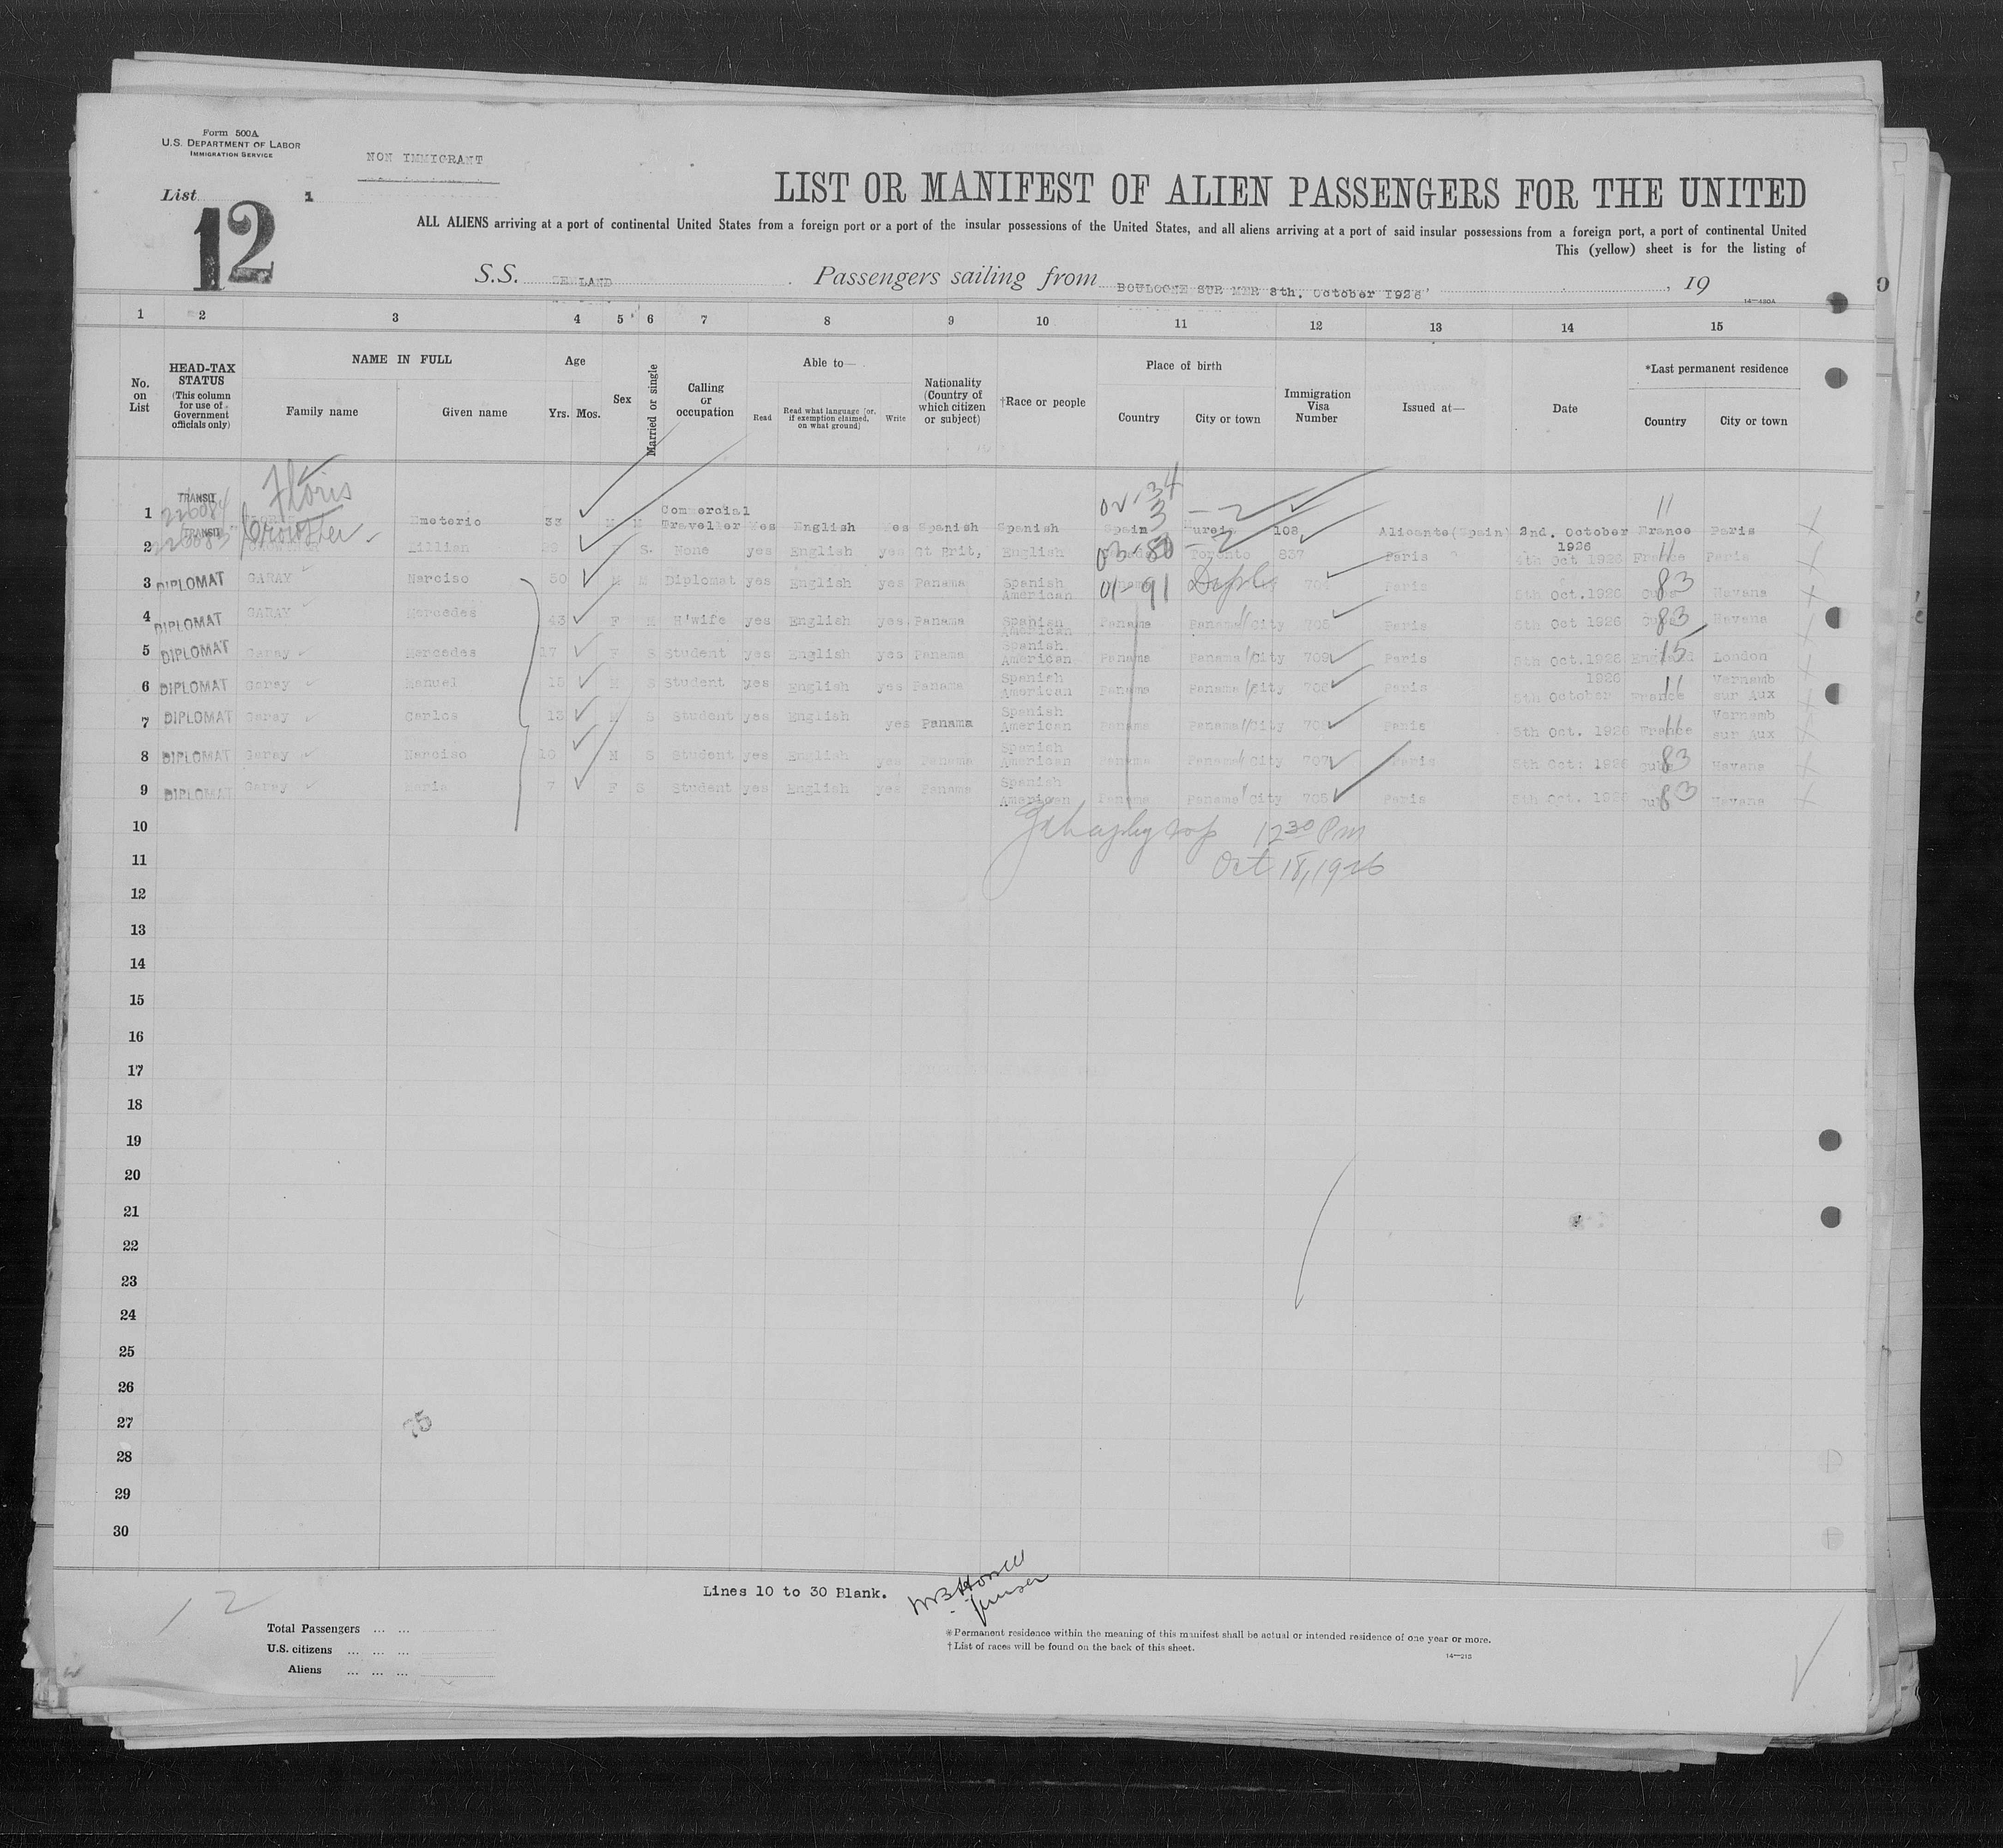 Form 500A
U.S. DEPARTMENT OF LABOR
IMMIGRATION SERVICE
NON IMMIGRANT
List 1
12
LIST OR MANIFEST OF ALIEN PASSENGERS FOR THE UNITED
ALL ALIENS arriving at a port of continental United States from a foreign port or a port of the insular possessions of the United States, and all aliens arriving at a port of said insular possessions from a foreign port, a port of continental United
This (yellow) sheet is for the listing of
S.S. LAND Passengers sailing from BOULOGNE SUR MER 8th. October 1926 , 19
14—430A
1 2 3 4 5 6 7 8 9 10 11 12 13 14 15
No. on List
HEAD-TAX STATUS (This column for use of Government officials only)
NAME IN FULL
Family name Given name
Age
Yrs. Mos.
Sex
Married or single
Calling or occupation
Able to—
Read Read what language [or, if exemption claimed, on what ground] Write
Nationality (Country of which citizen or subject)
†Race or people
Place of birth
Country City or town
Immigration Visa Number
Issued at—
Date
*Last permanent residence
Country City or town
1 TRANSIT 226084 Floris Emeterio 33 M M Commercial Traveller Yes English Yes Spanish Spanish Spain 108 Alicante(Spain) 2nd. October 1926 France 11 Paris
2 TRANSIT Crowther Lillian S. None yes English yes Gt Brit, English 03-80 Toronto 837 Paris 4th Oct 1926 France 11 Paris
3 DIPLOMAT GARAY Narciso 50 M M Diplomat yes English yes Panama Spanish American 01-91 Dipl Paris 5th Oct.1926 Cuba 83 Havana
4 DIPLOMAT GARAY Mercedes 43 F M H'wife yes English yes Panama Spanish American Panama Panama City 705 Paris 5th Oct 1926 Cuba 83 Havana
5 DIPLOMAT Garay Mercedes 17 F S Student yes English yes Panama Spanish American Panama Panama City 709 Paris 5th Oct.1926 England 15 London
6 DIPLOMAT Garay Manuel 15 M S Student yes English yes Panama Spanish American Panama Panama City Paris 5th October 1926 France 11 Vernamb sur Aux
7 DIPLOMAT Garay Carlos 13 M S Student yes English yes Panama Spanish American Panama Panama City Paris 5th Oct. 1926 France 11 Vernamb sur Aux
8 DIPLOMAT Garay Narciso 16 M S Student yes English yes Panama Spanish American Panama Panama City 707 Paris 5th Oct: 1926 Cuba 83 Havana
9 DIPLOMAT Garay Maria 7 F S Student yes English yes Panama Spanish American Panama Panama City 705 Paris 5th Oct. 1926 Cuba 83 Havana
10 12 30 Pm
11 Oct 18, 1926
12
13
14
15
16
17
18
19
20
21
22
23
24
25
26
27 75
28
29
30
Lines 10 to 30 Blank.
Purser
12
Total Passengers ... ...
U.S. citizens ... ... ...
Aliens ... ... ...
*Permanent residence within the meaning of this manifest shall be actual or intended residence of one year or more.
†List of races will be found on the back of this sheet.
14—213